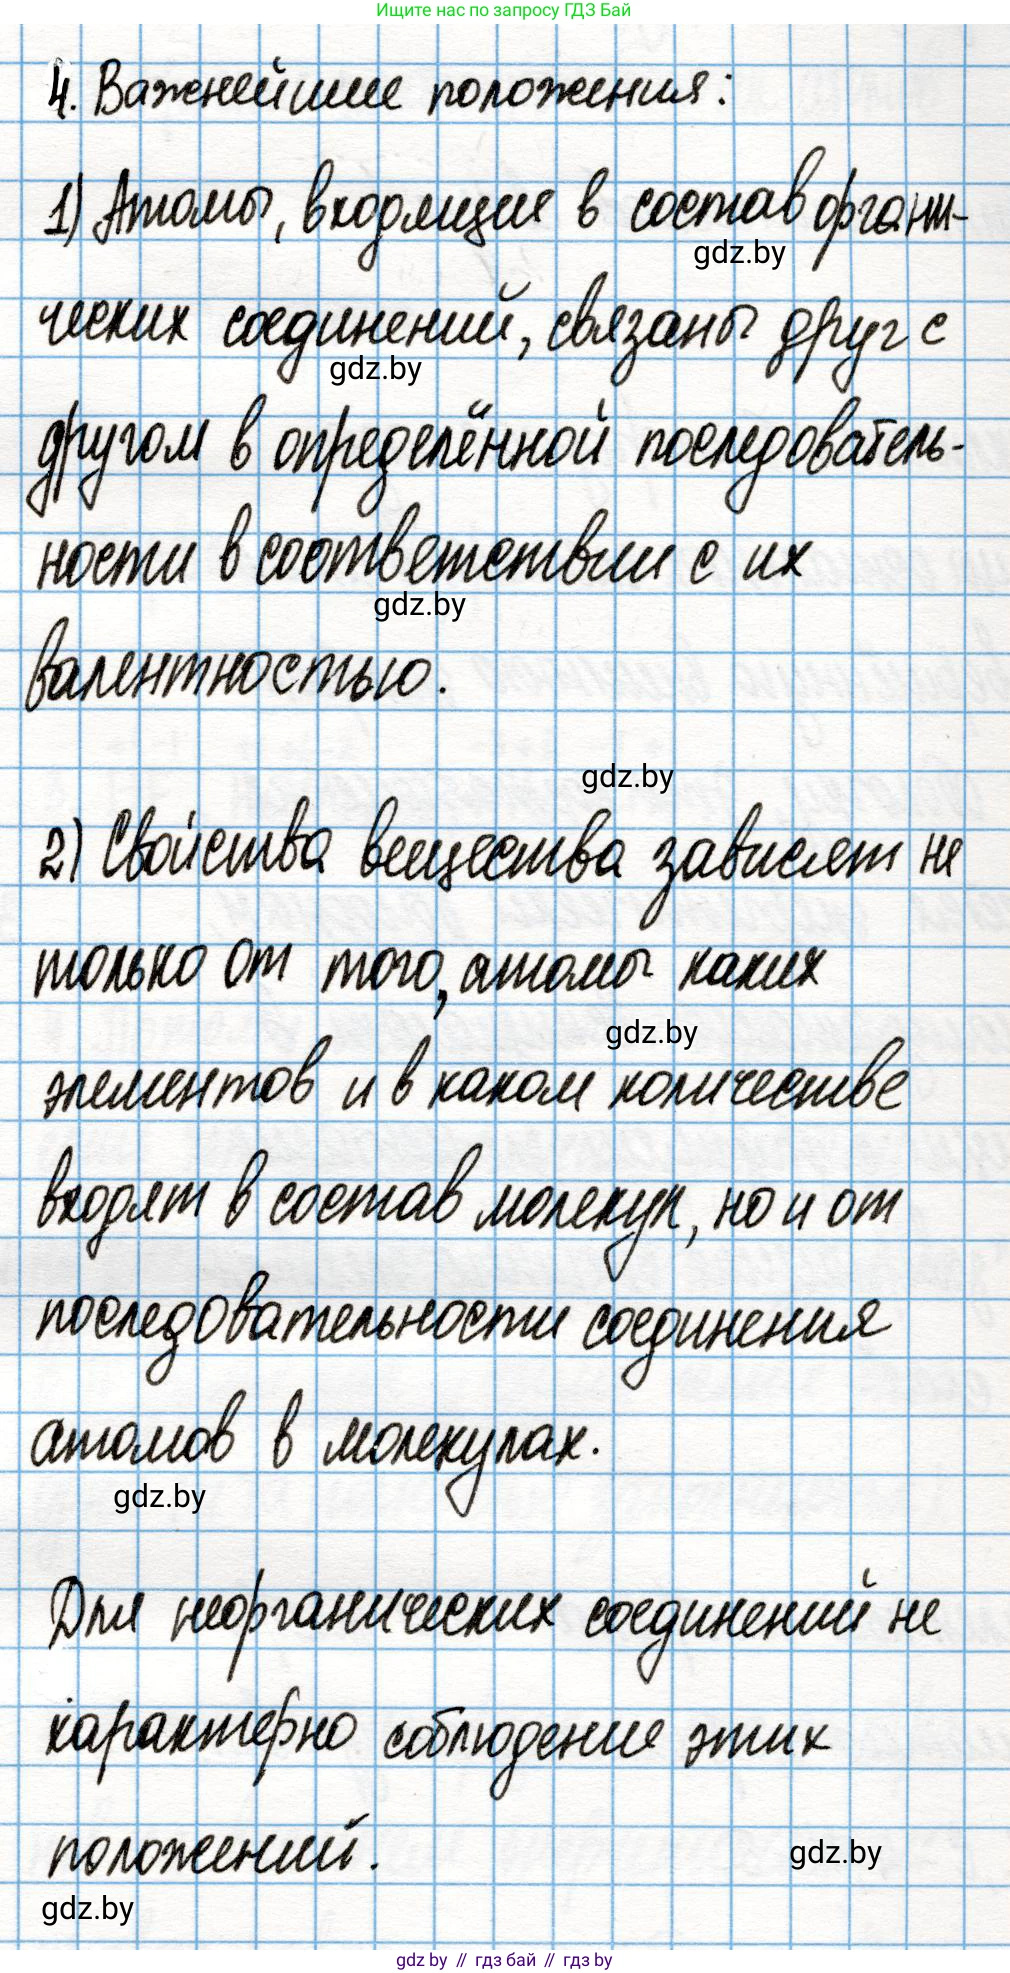 Ищите нас по запросу ГДЗ Бай
4. Важнейшие положения:
1) Атомы, входящие в состав органи-
gdz.by
ческих соединений, связаны друг с
gdz.by
другом в определённой последователь-
ности в соответствии с их
gdz.by
валентностью.
gdz.by
2) Свойства вещества зависят не
только от того, атомы каких
gdz.by
элементов и в каком количестве
входят в состав молекул, но и от
последовательности соединения
атомов в молекулах.
gdz.by
Для неорганических соединений не
характерно соблюдение этих
положений.
gdz.by
gdz.by
gdz by // гдз бай // гдз by